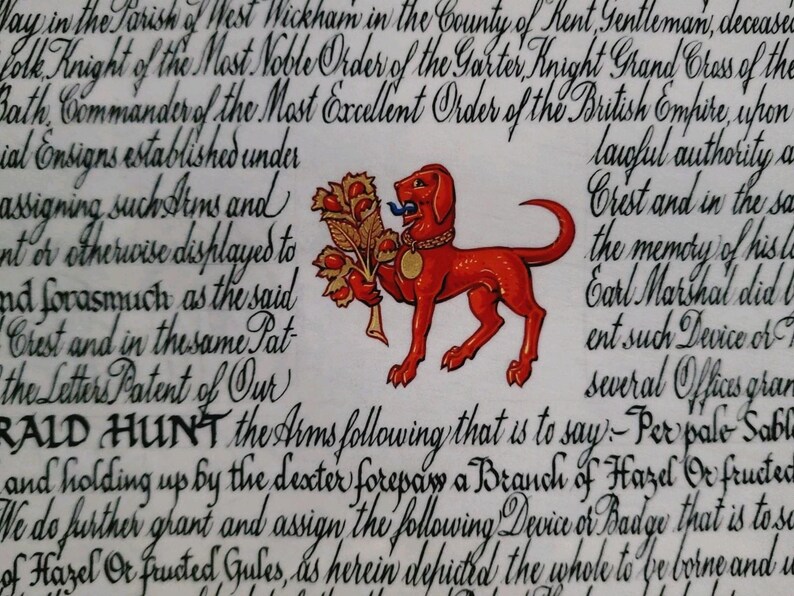 Way in the Parish of West Wickham in the County of Kent, Gentleman, deceased
folk, Knight of the Most Noble Order of the Garter, Knight Grand Cross of the
Bath, Commander of the Most Excellent Order of the British Empire, upon
ial Ensigns established under lawful authority a
assigning such Arms and Crest and in the sa
nt or otherwise displayed to the memory of his la
nd forasmuch as the said Earl Marshal did b
Crest and in the same Pat- ent such Device or
the Letters Patent of Our several Offices gran
RALD HUNT the Arms following that is to say:- Per pale Sable
and holding up by the dexter forepaw a Branch of Hazel Or fructed
We do further grant and assign the following Device or Badge that is to sa
of Hazel Or fructed Gules, as herein depicted the whole to be borne and u